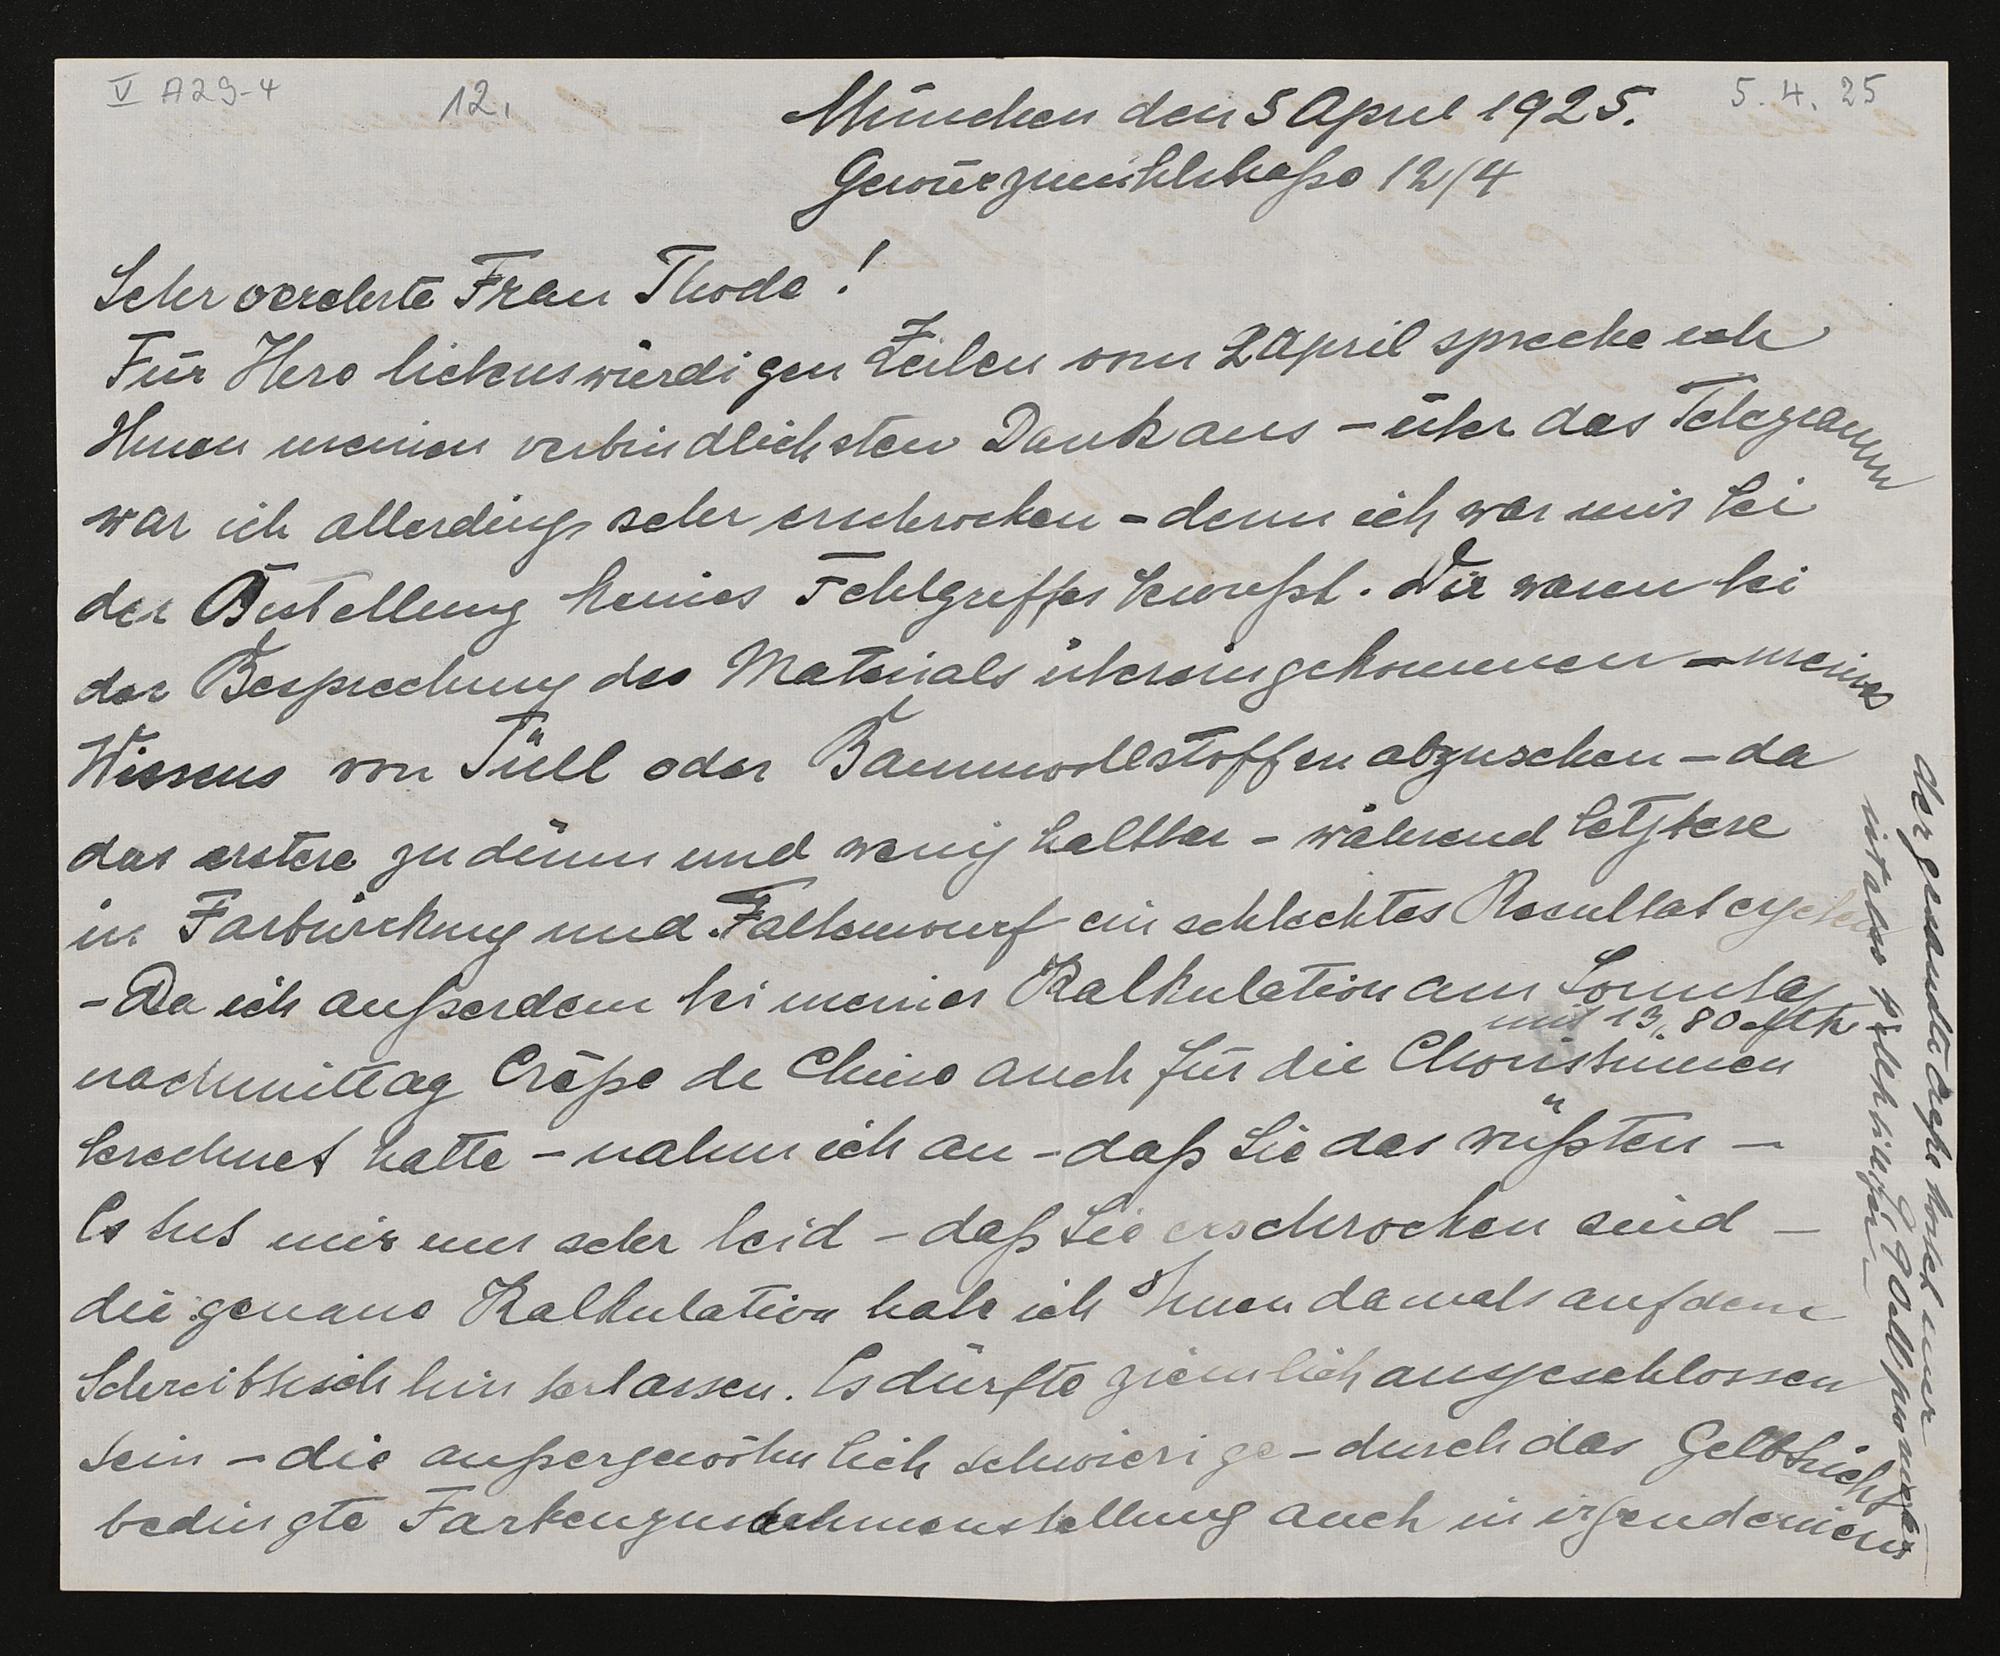 V A29-4
12.
5.4.25
München den 5 April 1925.
Gewürzmühlstraße 12/4
Sehr verehrte Frau Thode!
Für Ihre liebenswürdigen Zeilen vom 2 April spreche ich
Ihnen meinen verbindlichsten Dank aus – über das Telegramm
war ich allerdings sehr erschrocken – denn ich war mir bei
der Bestellung keines Fehlgriffes bewußt. Wir waren bei
der Besprechung des Materials übereingekommen – meines
Wissens von Tüll oder Baumwollstoffen abzusehen – da
das erstere zu dünn und wenig haltbar – während letztere
in Farbwirkung und Faltenwurf ein schlechtes Resultat ergeben
– Da ich außerdem bei meiner Kalkulation am Sonntag
mit 13,80 Mk
nachmittag Crêpe de Chine auch für die Choristinnen
berechnet hatte – nahm ich an – daß Sie das wüßten –
Es tut mir nun sehr leid – daß Sie erschrocken sind –
die genaue Kalkulation habe ich Ihnen damals auf dem
Schreibtisch hinterlassen. Es dürfte ziemlich ausgeschlossen
sein – die außergewöhnlich schwierige – durch das Gelblicht
bedingte Farbenzusammenstellung auch in irgendeinem
der gesandte Crêpe kostet nur
9,90 Mk pro meter
ist also billiger –